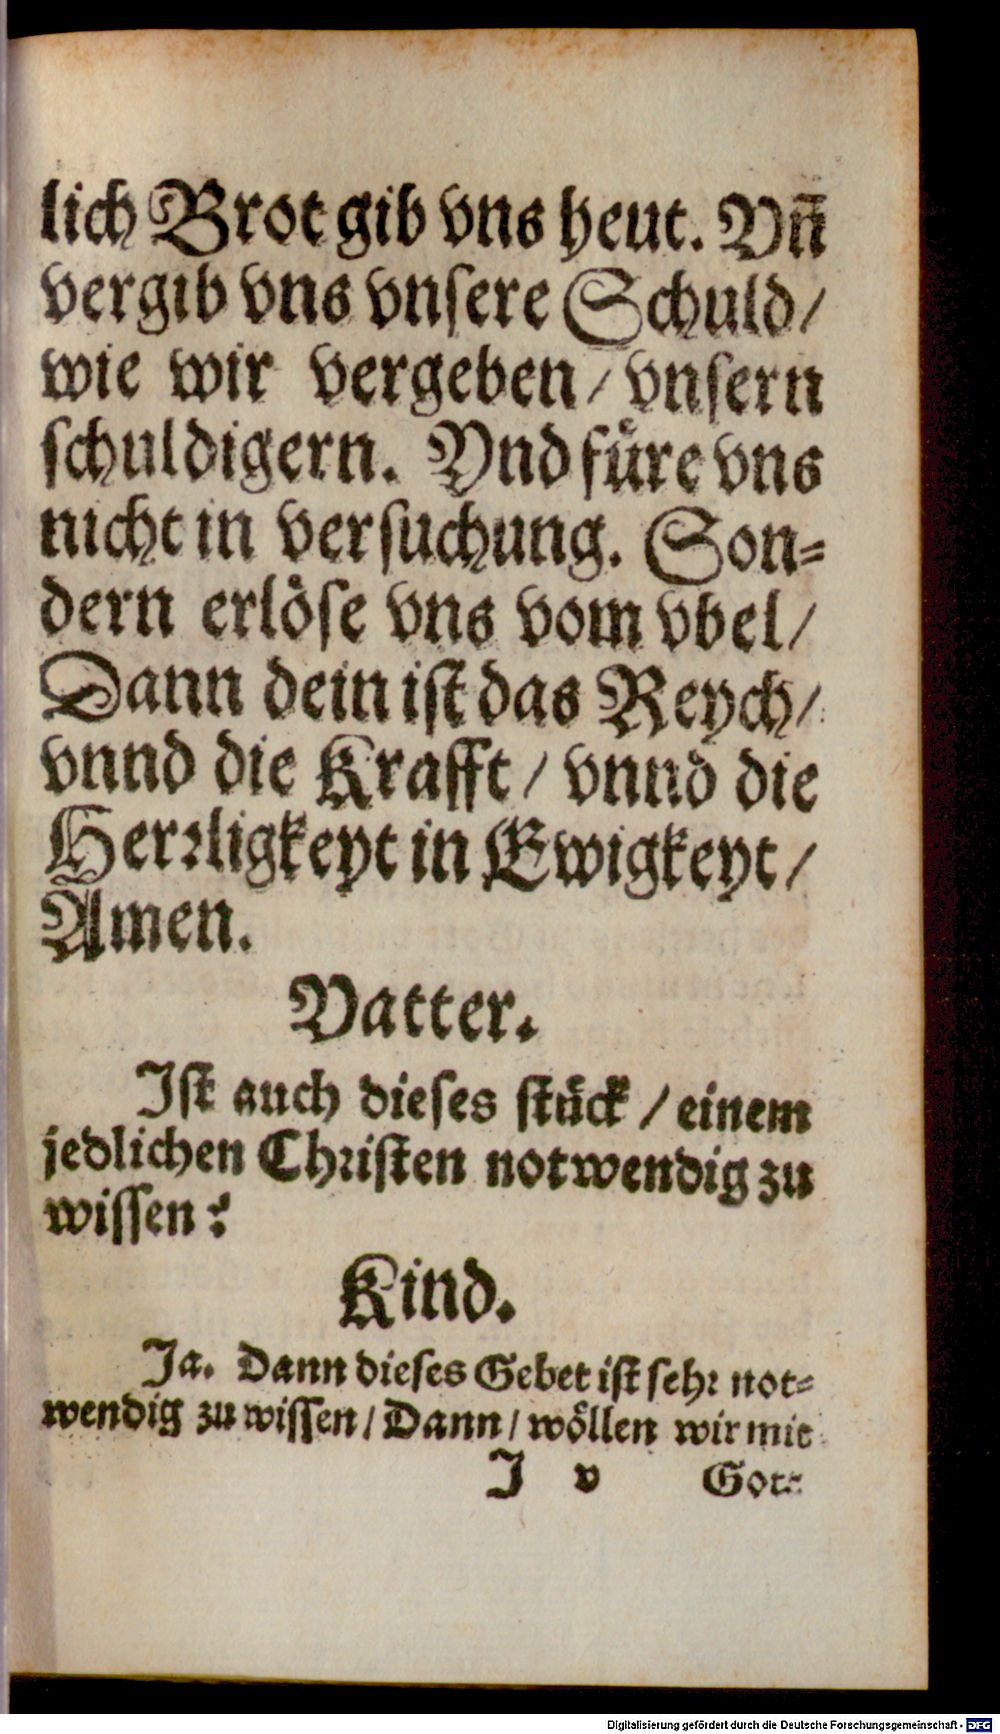 lich Brot gib vns heut. Vñ
vergib vns vnsere Schuld/
wie wir vergeben/ vnsern
schuldigern. Vnd fuͤre vns
nicht in versuchung. Son⸗
dern erlöse vns vom vbel/
Dann dein ist das Reych/
vnnd die Krafft/ vnnd die
Herꝛligkeyt in Ewigkeyt/
Amen.
Vatter.
Ist auch dieses stuͤck/ einem
jedlichen Chꝛisten notwendig zu
wissen?
Kind.
Ja. Dann dieses Gebet ist sehꝛ not⸗
wendig zu wissen/ Dann/ woͤllen wir mit
J v Got⸗
Digitalisierung gefördert durch die Deutsche Forschungsgemeinschaft - DFG